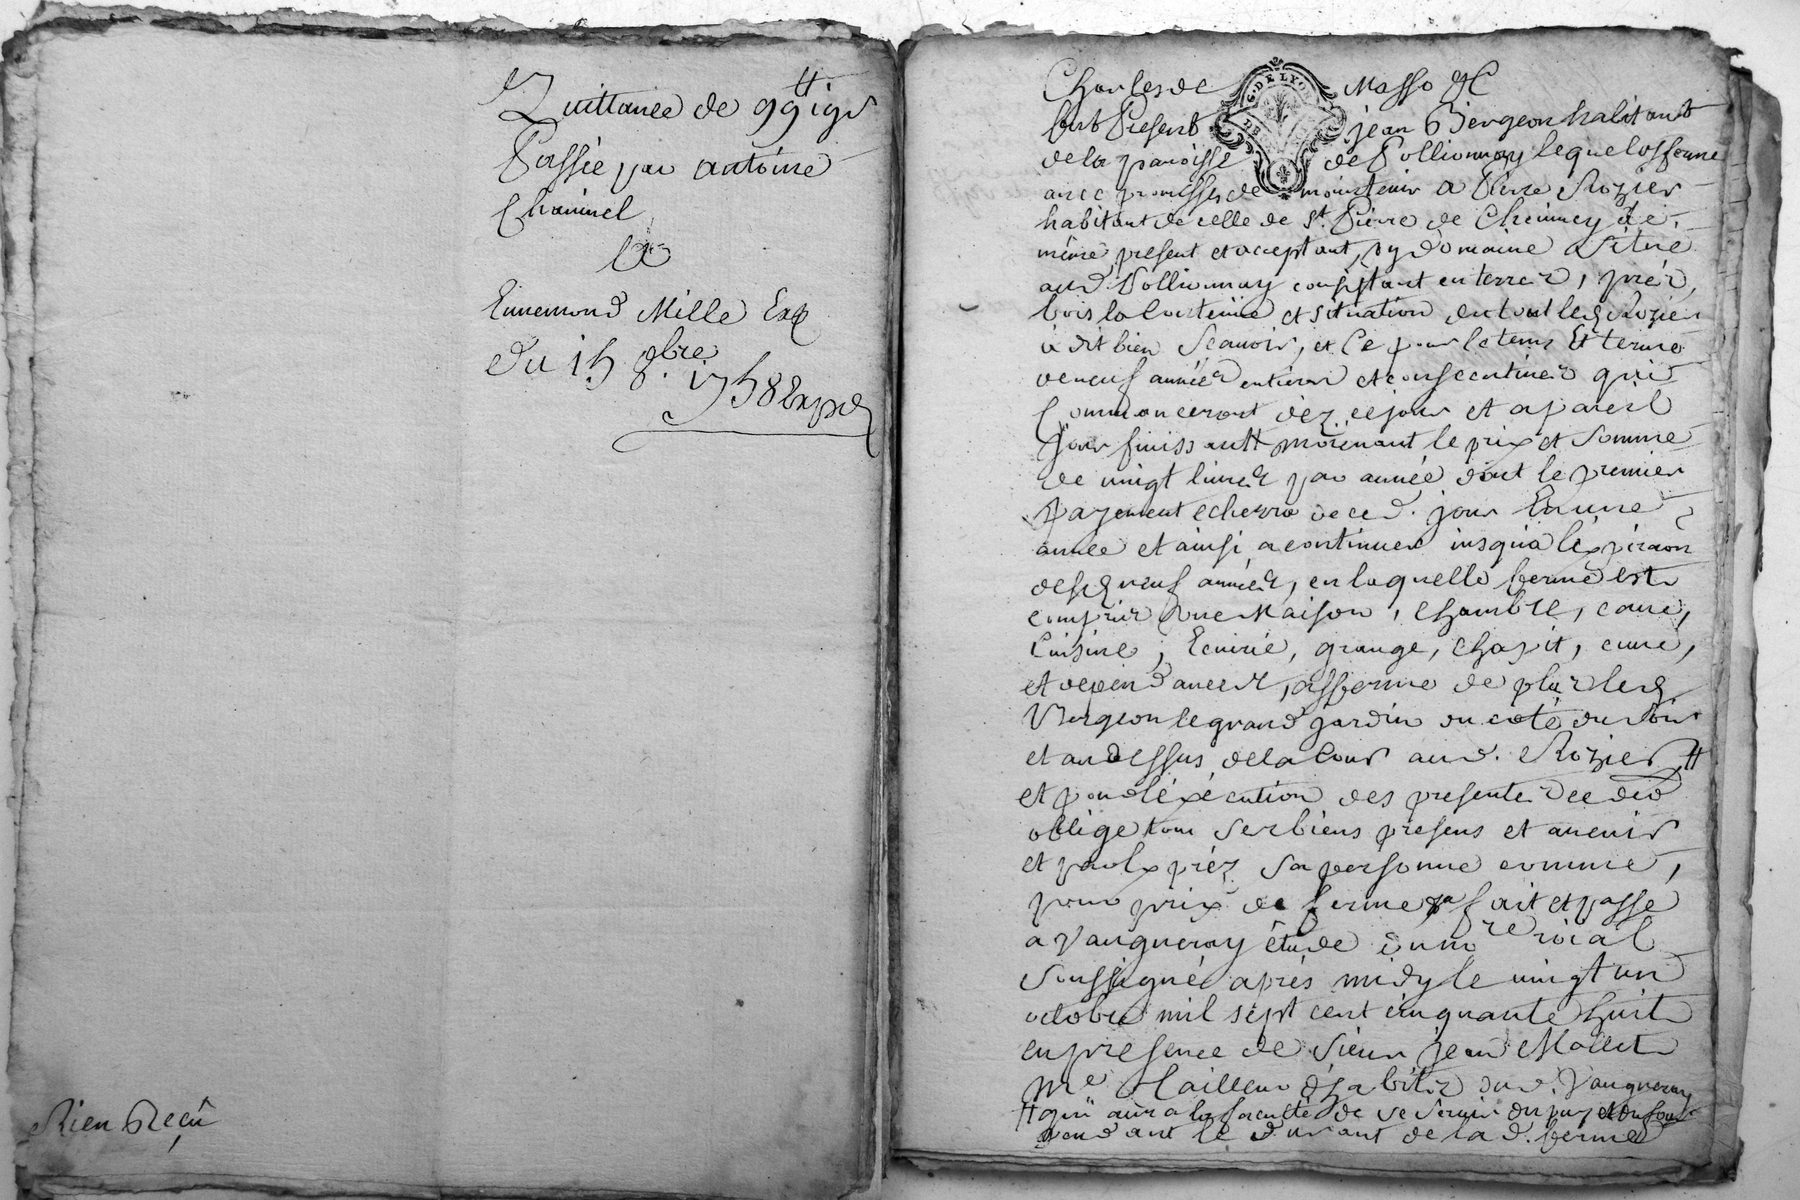 Quittance de 99
Passée par antoine
Chaninel
a
Ennemond Mille
du 15 8.bre 1758 Exped
Rien Reçû
G. DE LYON
Charles de Masso &c
fut Present jean Bergeon habitant
de la paroisse de Pollionnay lequel afferme
avec promesses de maintenir a Pierre Rozier
habitant de celle de St. Pierre de Chev
même present et acceptant, un domaine situé
aud. Pollionnay consistant en terres, prés,
bois la Contenüe et situation du tout led. Rozier
à dit bien Scavoir, et Ce pour le tems Et terme
de neuf années entieres et consecutives qui
Commanceront dez ce jour et a pareil
jour finissantt moienant le prix et somme
de vingt livres par année dont le premier
payement echerra de ced. jour En une
année et ainsi a continuer jusqu'a l'expiraon
desd. neuf années, en laquelle ferme est
compris Une Maison, chambre, cave,
Cuisine, Ecurie, grange, chapit, cuve,
et dependances, afferme de plus led.
Bergeon le grand jardin du coté du soir
et au dessus de la Cour aud. Rozier #
et pour l'exécution des presentes
oblige tous ses biens presens et avenir
et par Exprés Sa personne comme
pour prix de ferme fait et passé
a Vaugneray étude du nore roial
soussigné aprés midy le vingt un
octobre mil sept cent cinquante huit
en presence de Sieur jean Mallet
Me Tailleur d'habits dud. Vaugneray
# qui aura la faculté de se servir du puy et du four
pendant le durant de lad. ferme